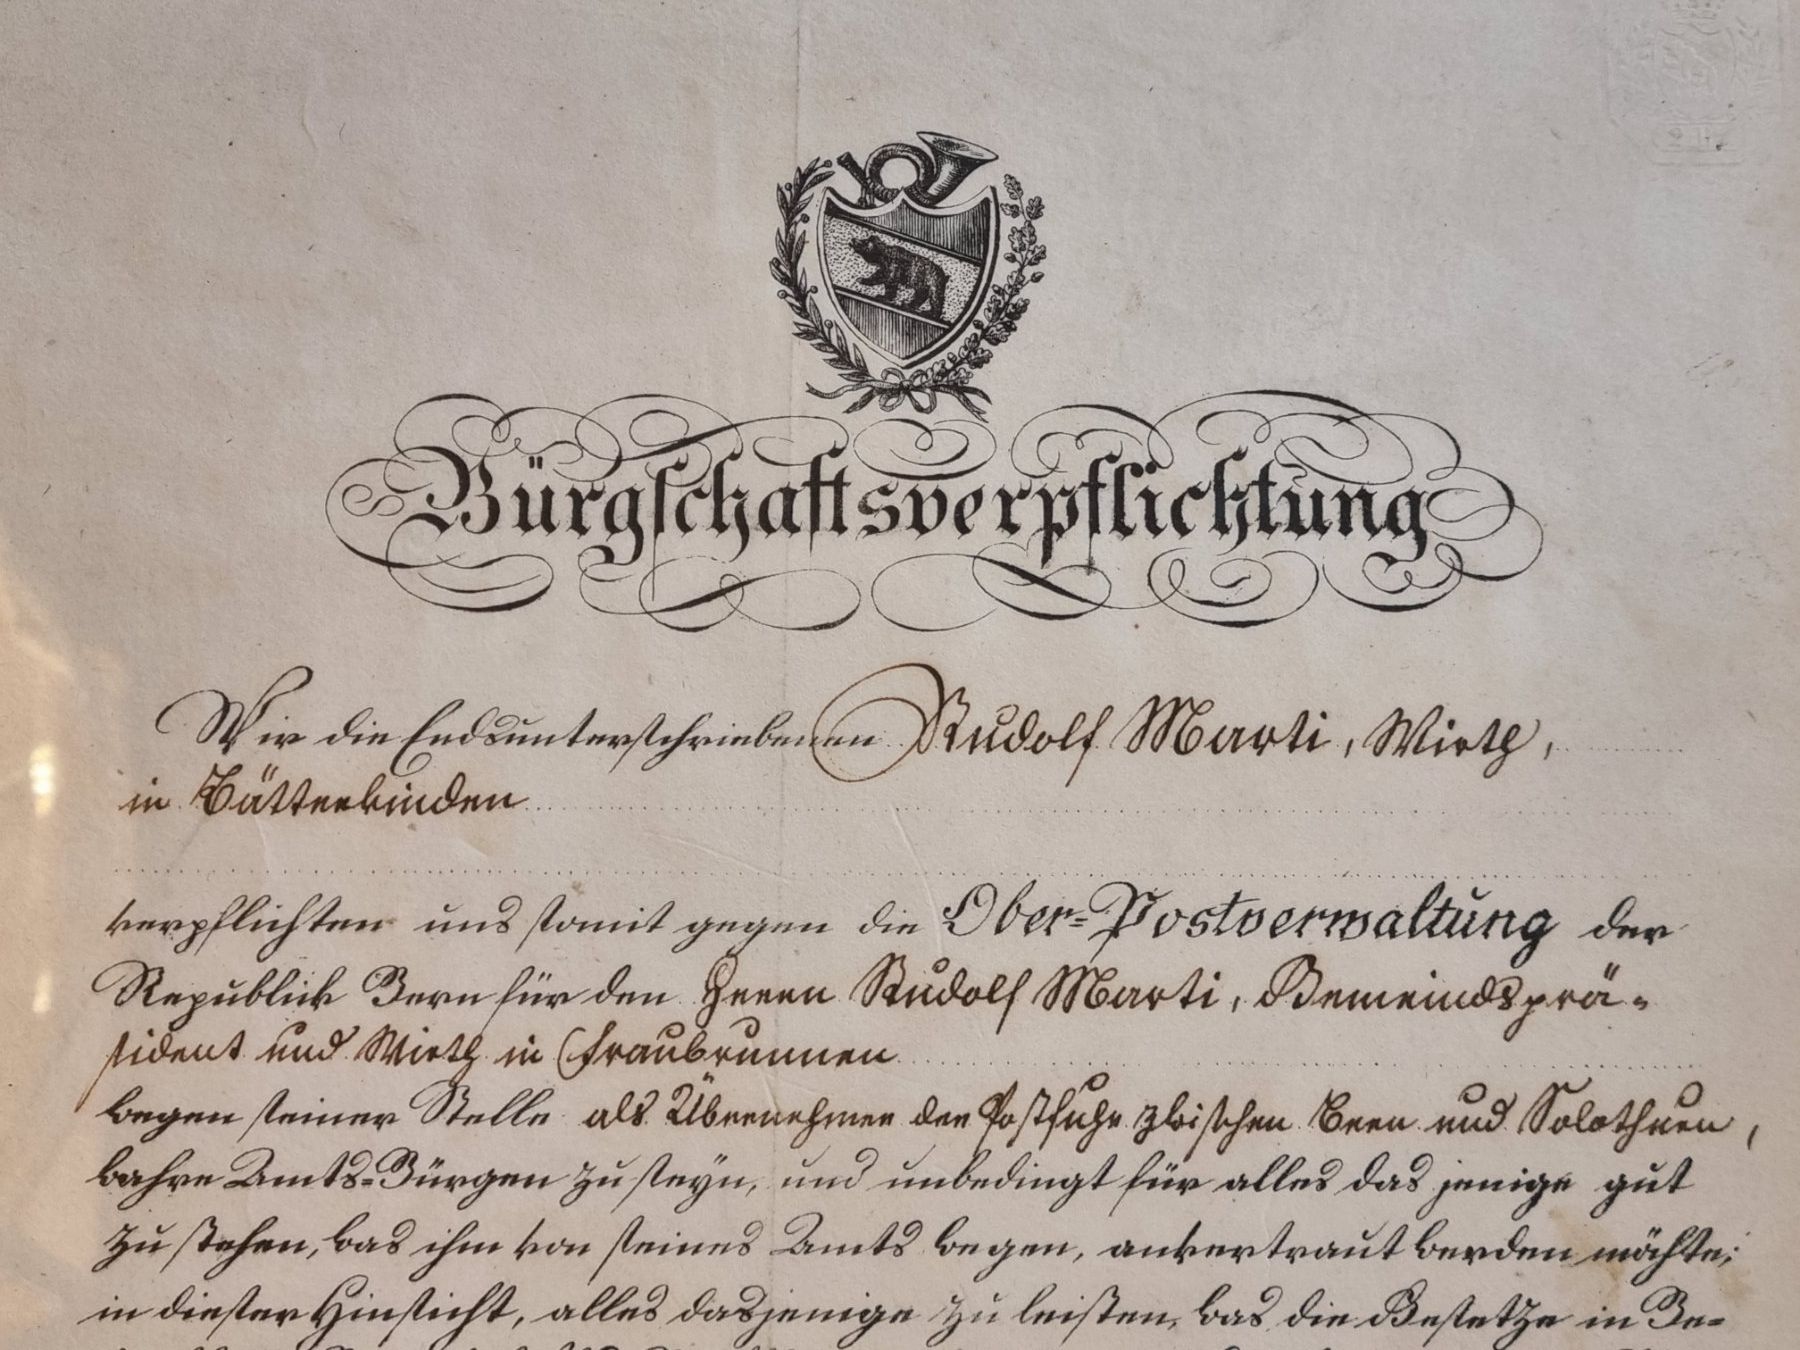 Bürgschaftsverpflichtung
Wir die Endsunterschriebenen Rudolf Marti, Wirth,
in Bätterkinden
verpflichten uns somit gegen die Ober-Postverwaltung der
Republick Bern für den Herrn Rudolf Marti, Gemeindsprä-
sident und Wirth in Fraubrunnen
wegen seiner Stelle als Übernehmer der Postfuhr zwischen Bern und Solothurn,
wahre Amts-Bürgen zu seyn, und unbedingt für alles das jenige gut
zu stehen, was ihm von seines Amts wegen, anvertraut werden möchte;
in dieser Hinsicht, alles dasjenige zu leisten, was die Gesetze in Be-